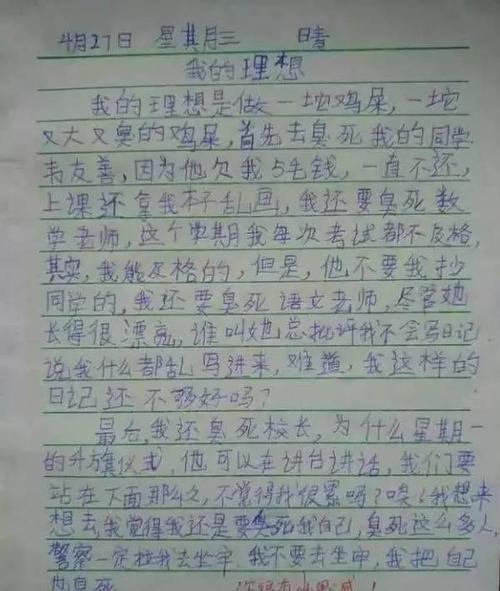 4月27日 星其月三 晴
我的理想
我的理想是做一坨鸡屎,一坨
又大又臭的鸡屎,首先去臭死我的同学
韦友善,因为他欠我5毛钱,一直不还,
上课还拿我本子乱画,我还要臭死数
学老师,这个学期我每次考试都不及格,
其实,我能及格的,但是,他不要我抄
同学的,我还要臭死语文老师,尽管她
长得很漂亮,谁叫她总批评我不会写日记
说我什么都乱写进来,难道,我这样的
日记还不够好吗?
最后,我还臭死校长,为什么星期一
的升旗仪式,他可以在讲台讲话,我们要
站在下面那么久,不觉得我很累吗?唉!我想来
想去我觉得我还是要臭死我自己,臭死这么多人,
警察一定拉我去坐牢,我不要去坐牢,我把自己
臭死